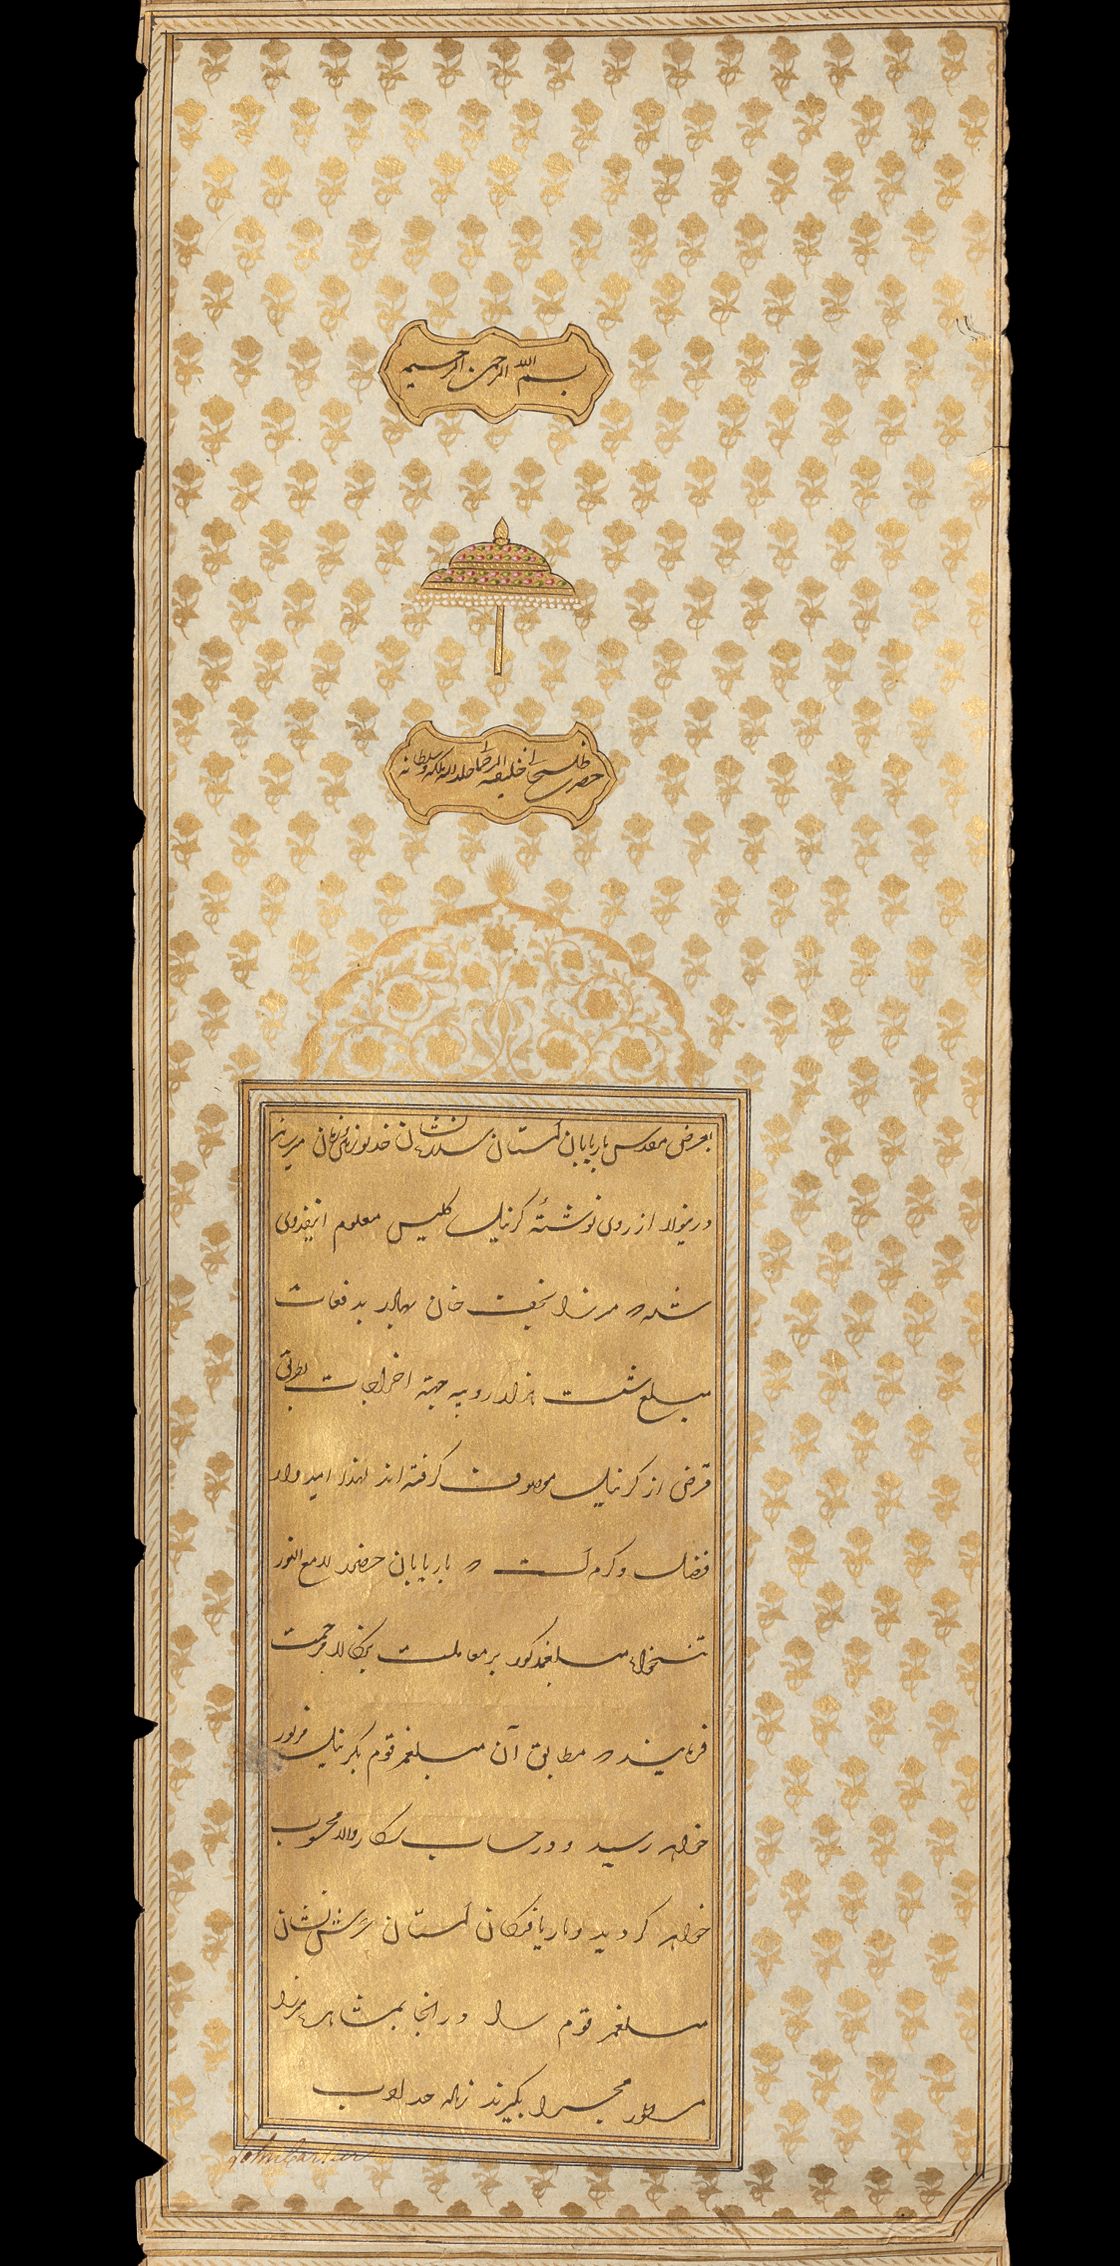 بسم الله الرحمن الرحیم
حضرت ظل سبحانی خلیفة الرحمانی خلد الله ملکه و سلطانه
بعرض مقدس باریابان آستان سدره نشان خدیو زمین و زمان میرساند
درینولا از روی نوشتهٔ کرنایل کلیس معلوم اینفدوی
شده که مرزا نجف خان بهادر بدفعات
مبلغ شصت هزار روپیه جهته اخراجات بطریق
قرض از کرنایل موصوف گرفته اند لهذا امیدوار
فضل و کرم است که باریابان حضور لامع النور
تنخواه مبلغ مذکور بر معاملت بنگاله مرحمت
فرمایند که مطابق آن مبلغ مرقوم بکرنایل مزبور
خواهد رسید و در حساب سرکار والا محسوب
خواهد گردید و باریافتگان آستان عرش نشان
مبلغ مرقوم را در انجا بمشاهره مرزا
مسطور مجرا بگیرند زیاده حد ادب
John Carter